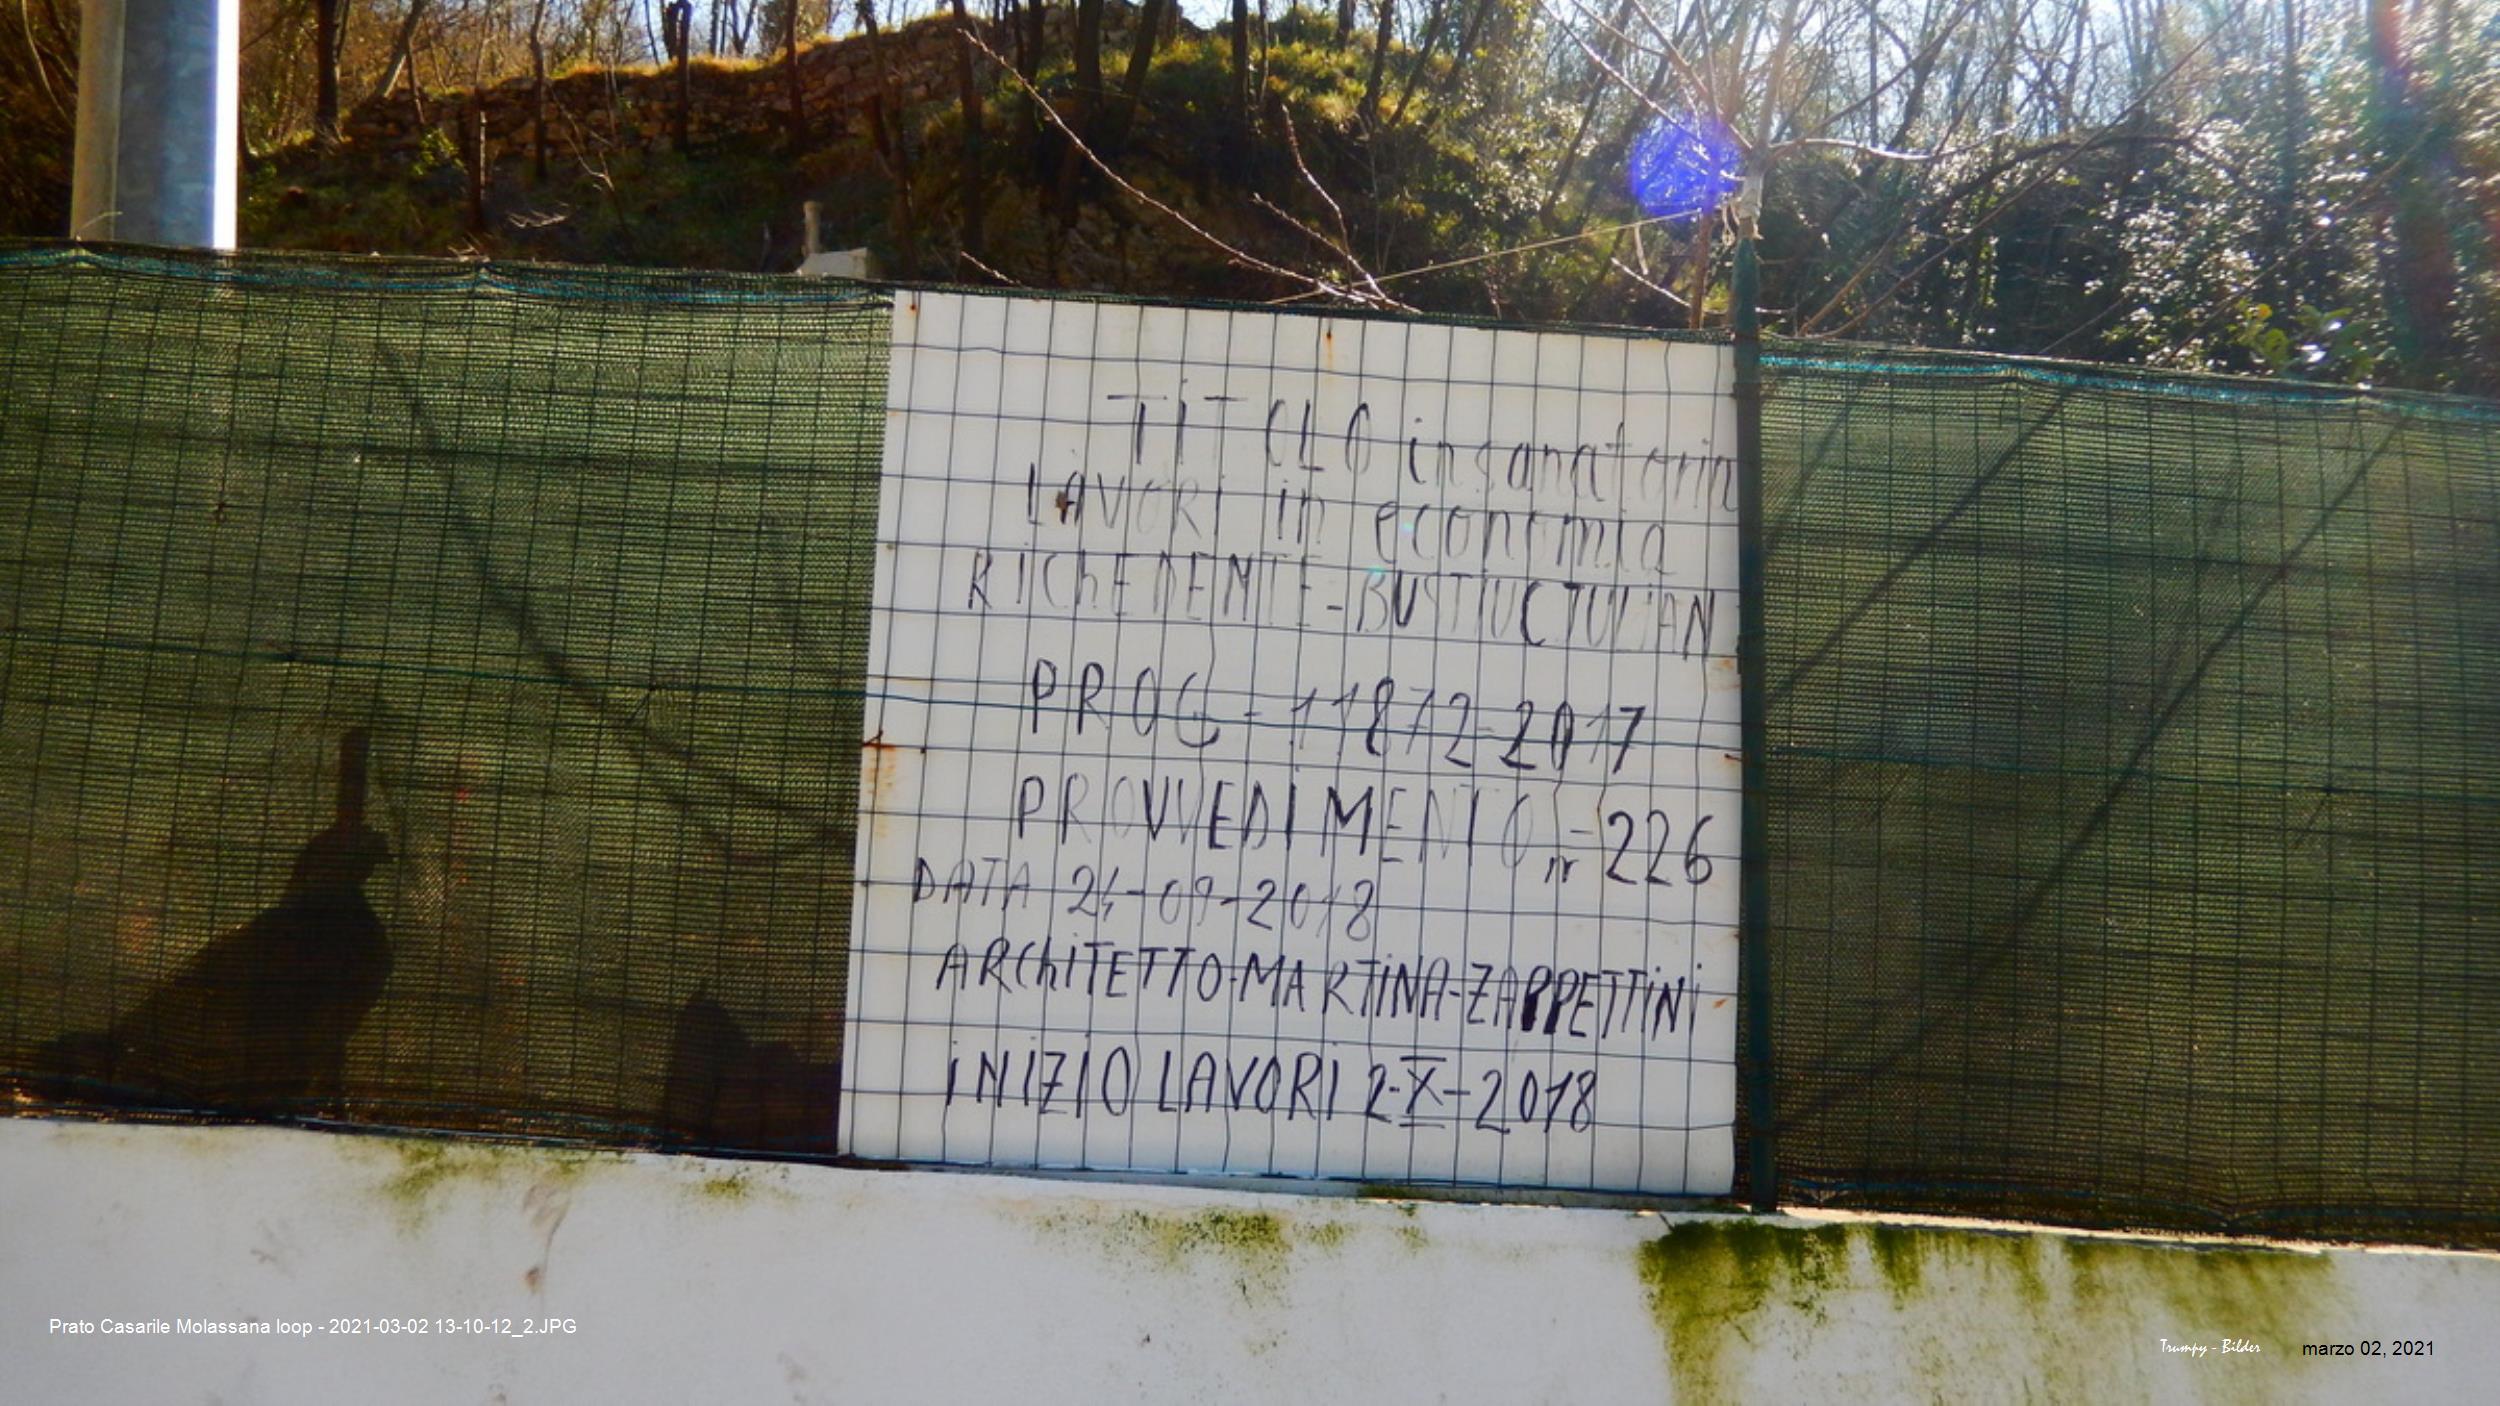 TiTOLO in sanatoria
LAVORi in economia
RiChEDENTE - BUSTIUC IULIAN
PROG - 11872-2017
PROVVEDiMENTO nr - 226
DATA 24-09-2018
ARChiTETTO-MARTiNA-ZAPPETTiNi
iNiZiO LAVORi 2-X-2018
Prato Casarile Molassana loop - 2021-03-02 13-10-12_2.JPG
Trumpy - Bilder
marzo 02, 2021